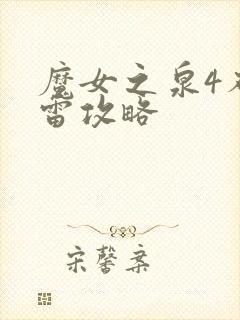 魔女之泉4
雷攻略
宋馨案